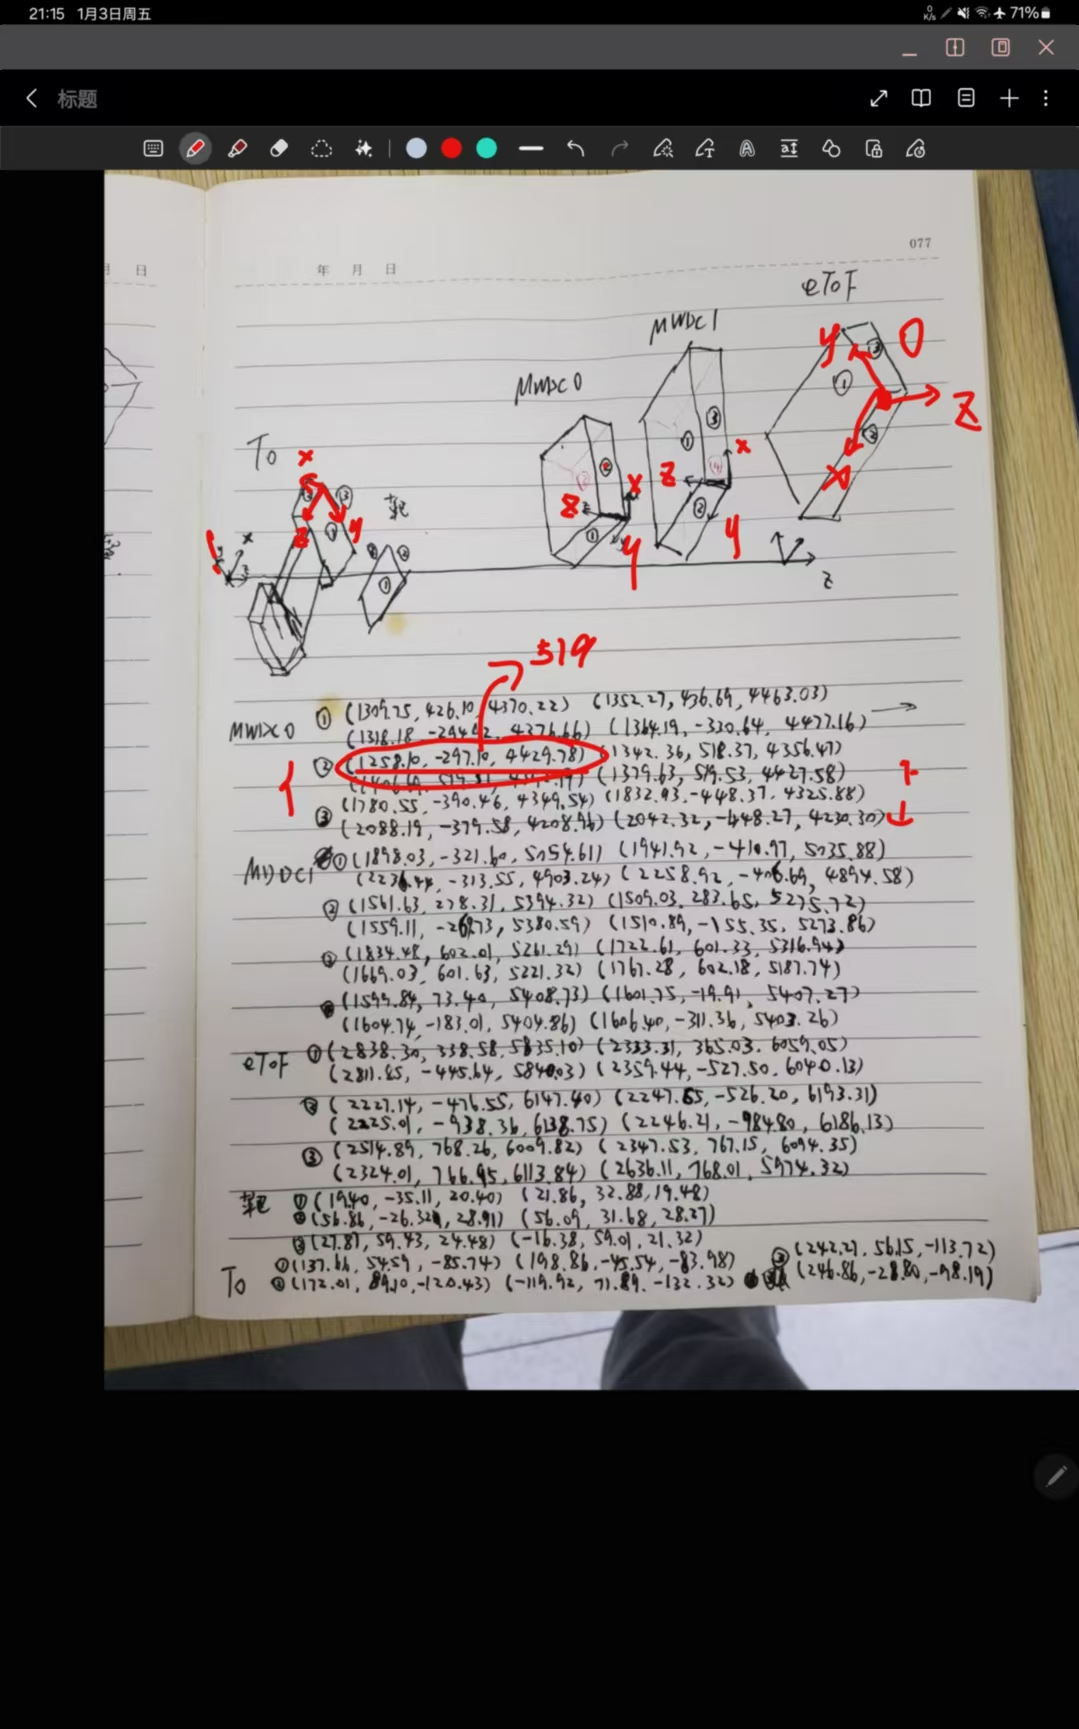 21:15 1月3日周五
0 K/s 71%
标题
077
月 日 年 月 日
eToF
MWDC1
MWDC0
T0
靶
x
y
z
x
z
y
x
z
y
y
O
z
x
x
z
z
519
MWDC0 ① (1309.75, 426.10, 4370.22) (1352.27, 436.69, 4463.03)
(1318.18, -294.42, 4376.66) (1364.19, -330.64, 4477.16)
② (1258.10, -297.10, 4429.78) (1342.36, 518.37, 4356.47)
(1379.63, 519.53, 4427.58)
③ (1780.55, -390.46, 4349.54) (1832.93, -448.37, 4325.88)
(2088.19, -379.58, 4208.96) (2042.32, -448.27, 4230.30)
MWDC1 ① (1898.03, -321.60, 5054.61) (1941.92, -410.97, 5035.88)
(2236.44, -313.55, 4903.24) (2258.92, -406.69, 4894.58)
② (1561.63, 278.31, 5394.32) (1509.03, 283.65, 5275.72)
(1559.11, -268.73, 5380.59) (1510.89, -155.35, 5273.86)
③ (1834.48, 602.01, 5261.29) (1722.61, 601.33, 5316.94)
(1669.03, 601.63, 5221.32) (1767.28, 602.18, 5187.74)
(1599.84, 73.40, 5408.73) (1601.75, -19.91, 5407.27)
(1604.74, -183.01, 5404.86) (1606.40, -311.36, 5403.26)
eToF ① (2838.30, 338.58, 5835.10) (2333.31, 365.03, 6059.05)
(2811.85, -445.64, 5840.03) (2359.44, -527.50, 6040.13)
② (2227.14, -476.55, 6147.40) (2247.65, -526.20, 6193.31)
(2225.01, -938.36, 6138.75) (2246.21, -984.80, 6186.13)
③ (2514.89, 768.26, 6009.82) (2347.53, 767.15, 6094.35)
(2324.01, 766.95, 6113.84) (2636.11, 768.01, 5974.32)
靶 ① (19.40, -35.11, 20.40) (21.86, 32.88, 19.48)
② (56.86, -26.32, 28.91) (56.09, 31.68, 28.27)
③ (27.87, 59.43, 24.48) (-16.38, 59.01, 21.32)
T0 ① (137.66, 54.59, -85.74) (198.86, -45.54, -83.98) ② (242.21, 56.15, -113.72)
(172.01, 89.10, -120.43) (-119.92, 71.89, -132.32) (246.86, -28.80, -98.19)